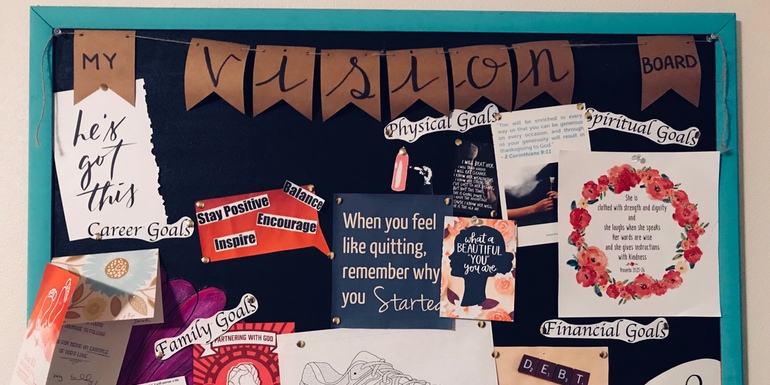 MY
vision
BOARD
he's
got
this
Physical Goals
You will be enriched in every
way so that you can be generous
on every occasion, and through
us your generosity will result in
thanksgiving to God."
- 2 Corinthians 9:11
Spiritual Goals
Career Goals
Stay Positive
Balance
Encourage
Inspire
When you feel
like quitting,
remember why
you Started
what a
BEAUTIFUL
"YOU"
you are
She is
clothed with strength and dignity
and
she laughs when she speaks
Her words are wise
and she gives instructions
with Kindness
Proverbs 31:25-26
Family Goals
PARTNERING WITH GOD
Financial Goals
DEBT